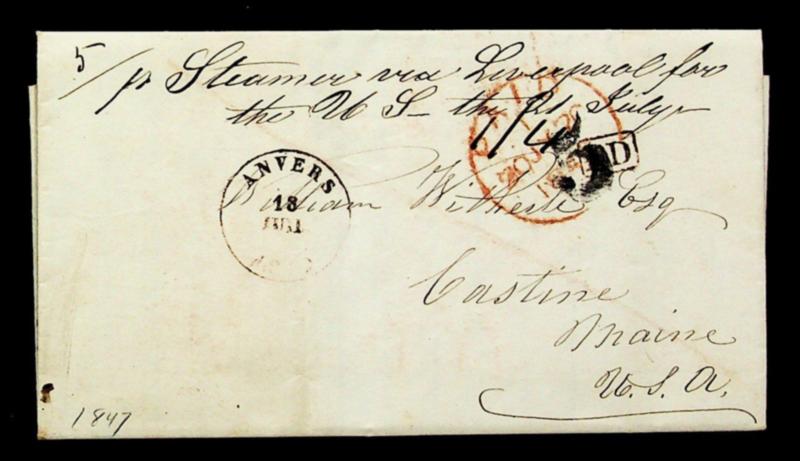 5/pr Steamer via Liverpool for
the U S - the 21 July
1/4
PD
ANVERS
18
JUIL
William Witherle Esq
Castine
Maine
U.S.A.
1847